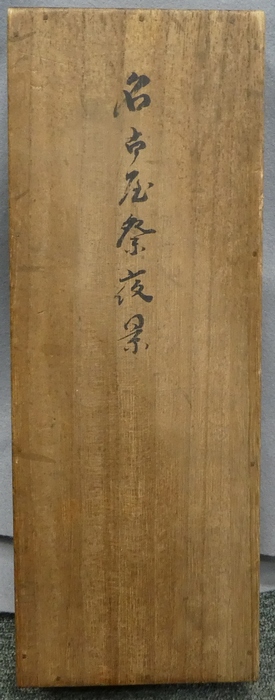 名古屋祭夜景